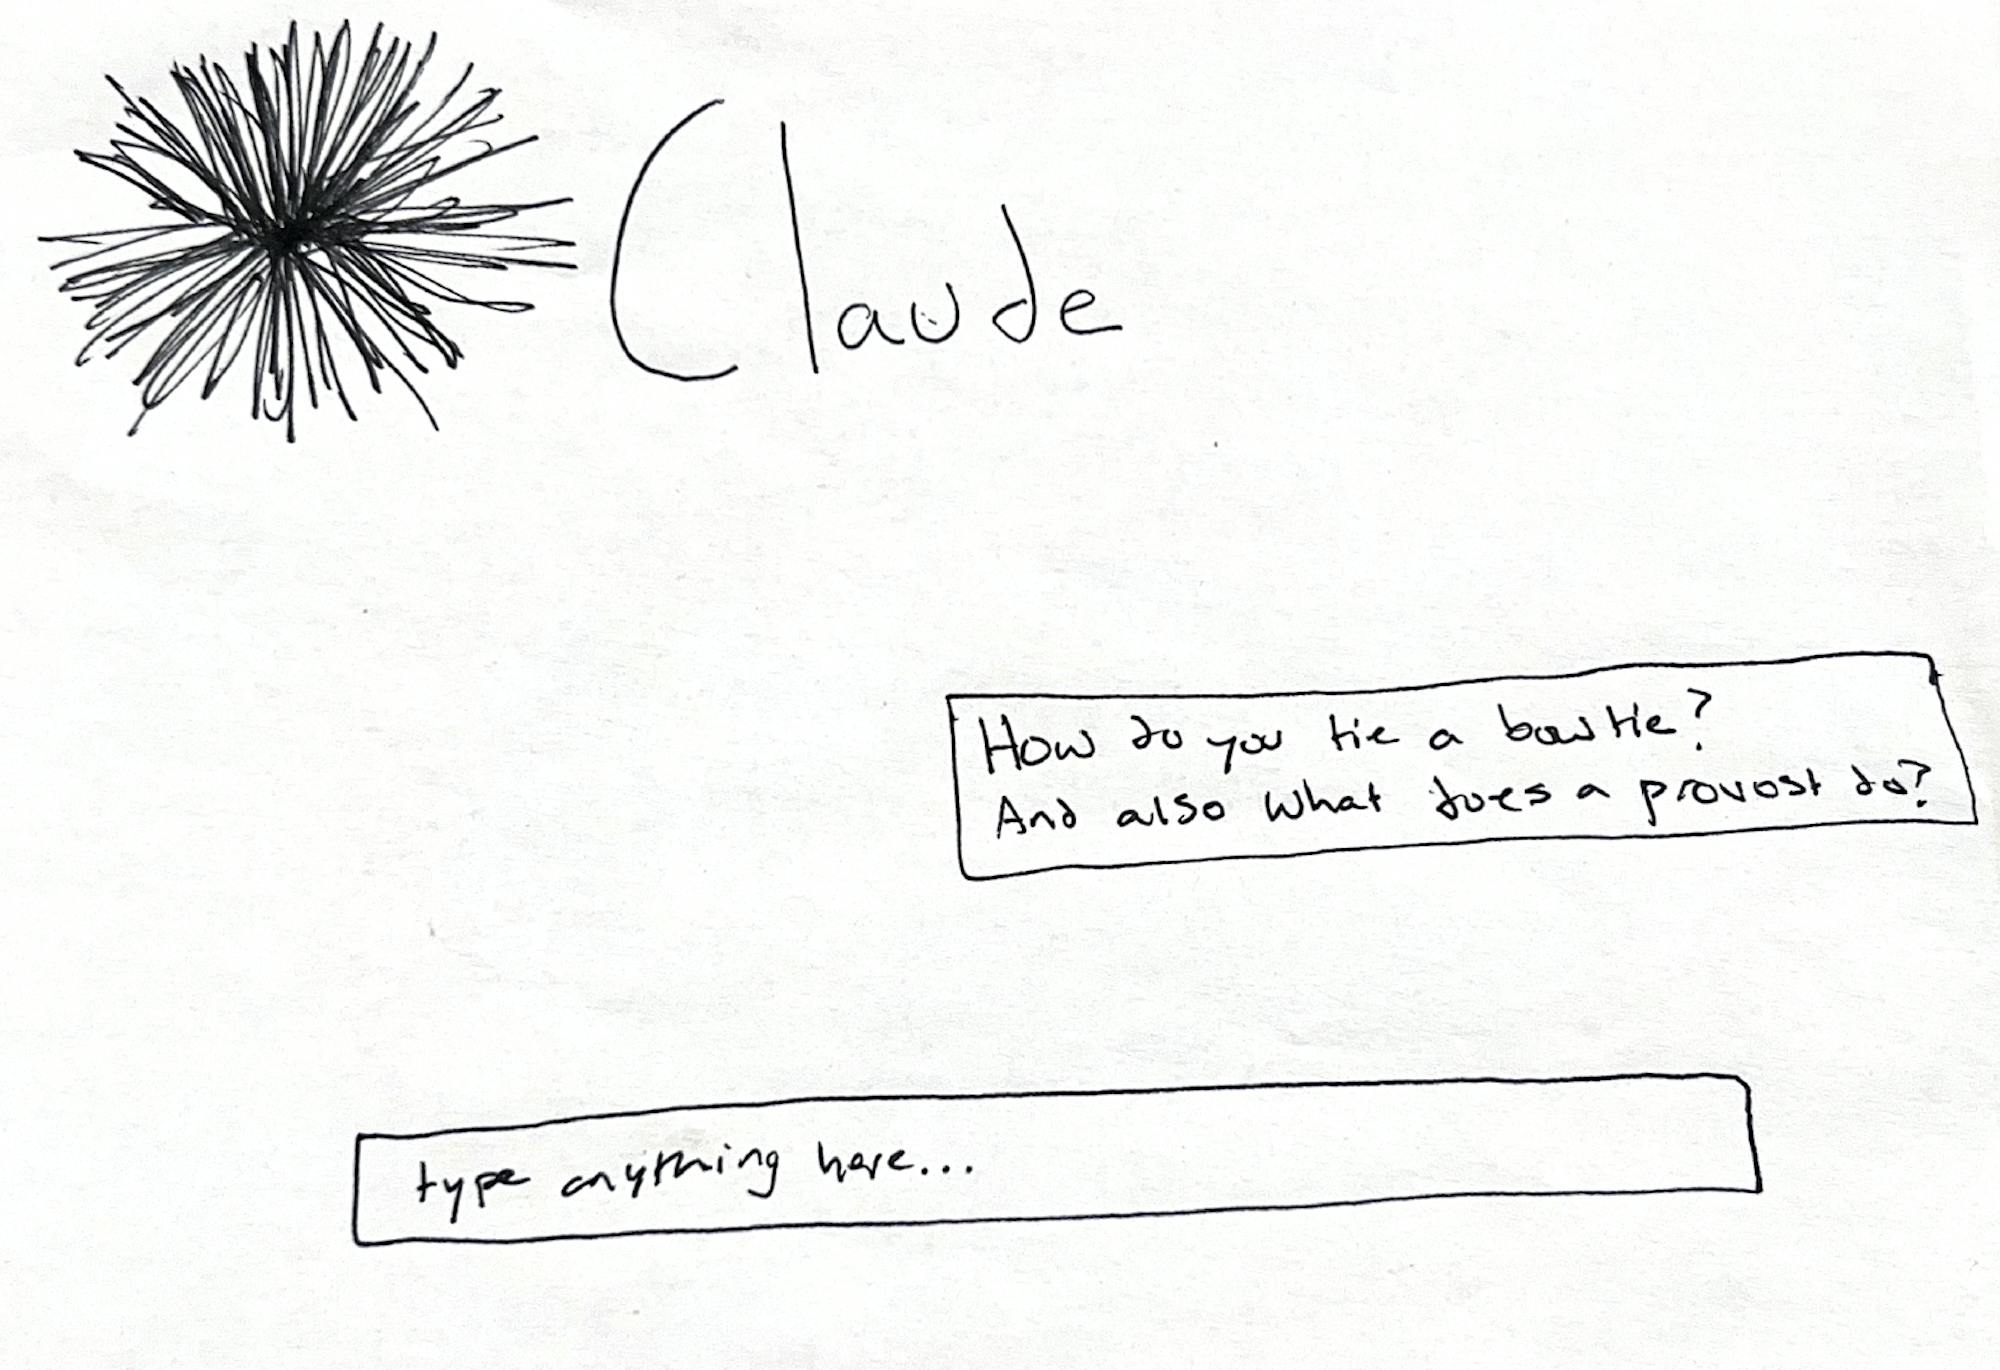 Claude
How do you tie a bowtie?
And also what does a provost do?
type anything here...